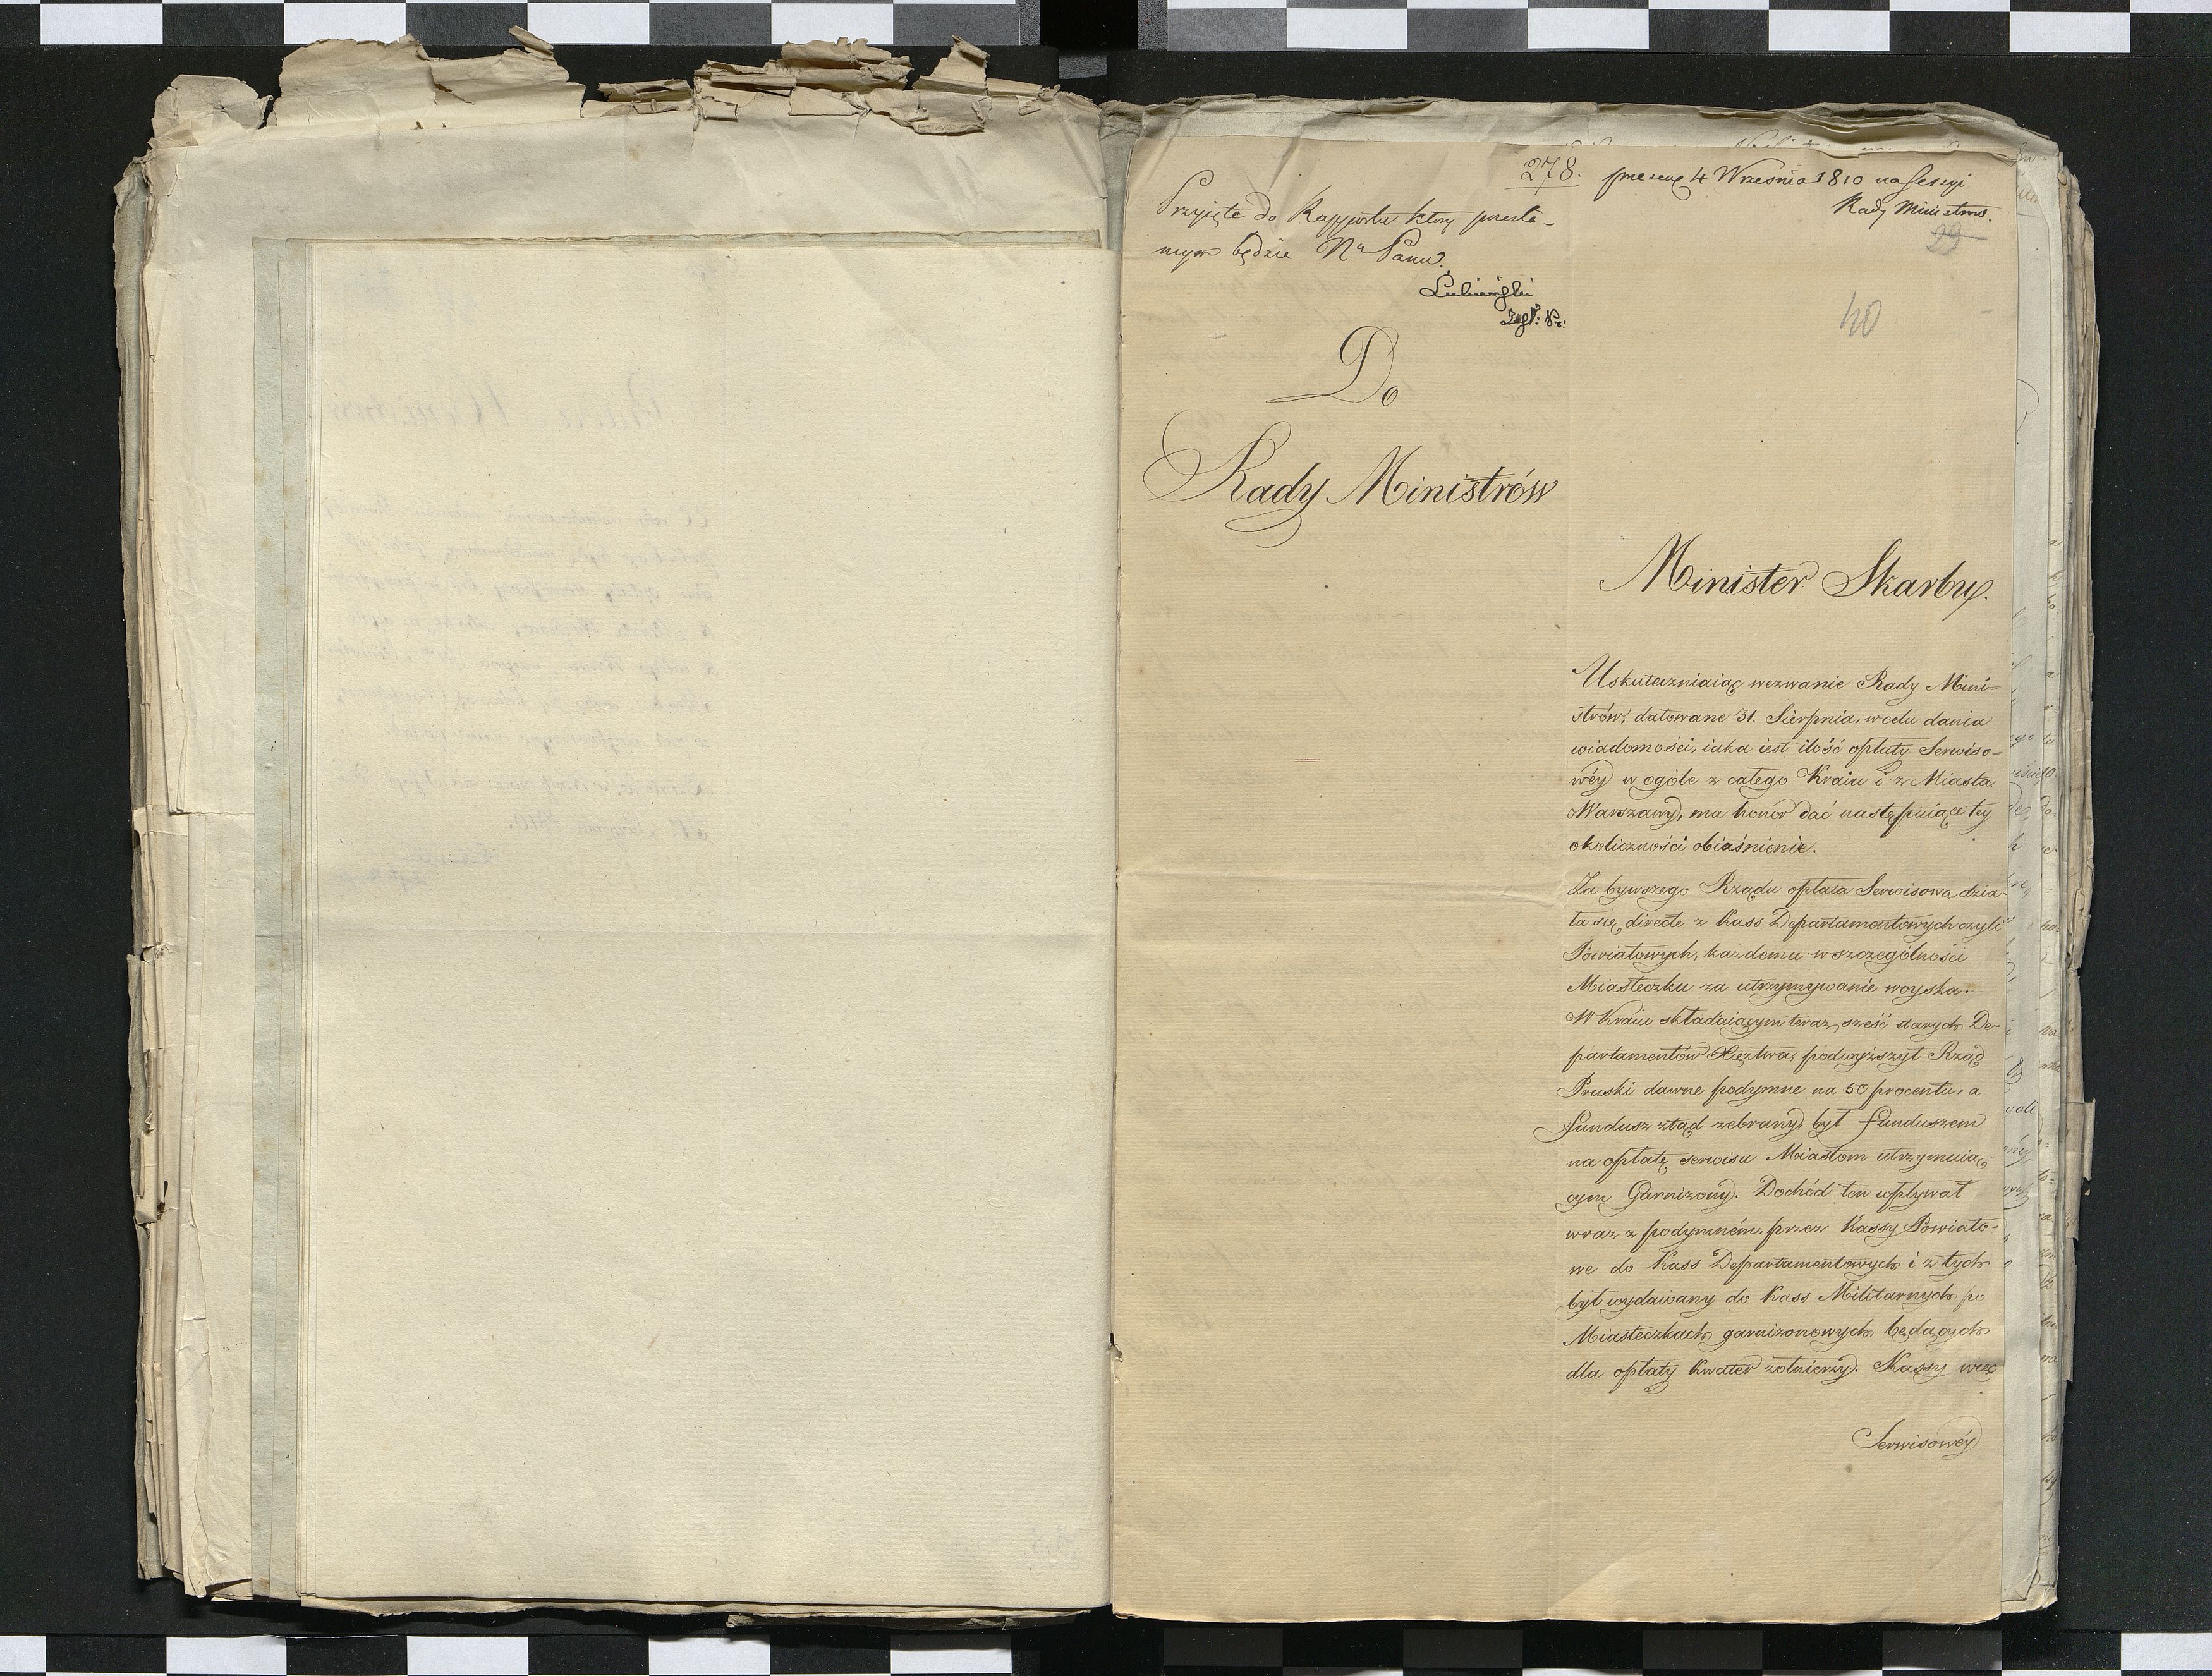 278. 4 Września 1810 na Sessyi
Rady Ministrow.
29
Przyięte do Rapportu ktory przesła-
nym będzie Nu Panu.
Łubieński
40
Do
Rady Ministrów
Minister Skarbu.
Uskuteczniaiąc wezwanie Rady Mini=
strów, datowane 31. Sierpnia, w celu dania
wiadomości, iaka iest ilość opłaty Serwiso-
wéy w ogóle z całego Kraiu i z Miasta
Warszawy, ma honor dać następuiące tey
okoliczności obiaśnienie.
Za bywszego Rządu opłata Serwisowa dzia-
ła się directe z Kass Departamentowych czyli
Powiatowych, każdemu w szczególności
Miasteczku za utrzymywanie woyska.—
W Kraiu składaiącym teraz sześć starych De-
partamentów Xięztwa, podwyższył Rząd
Pruski dawne podymne na 50 procentu, a
fundusz ztąd zebrany, był funduszem
na opłatę serwisu Miastom utrzymuią-
cym Garnizony. Dochód ten wpływał
wraz z podymném przez Kassy Powiato-
we do Kass Departamentowych i z tych
był wydawany do Kass Militarnych po
Miasteczkach garnizonowych będących
dla opłaty Kwater żołnierzy. Kassy więc
Serwisowéy